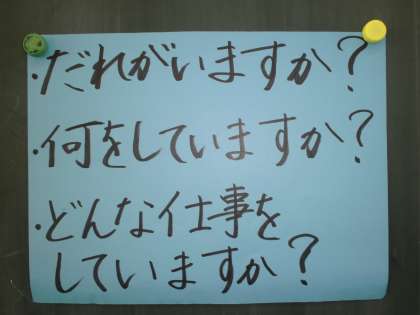 ・だれがいますか？
・何をしていますか？
・どんな仕事を
していますか？